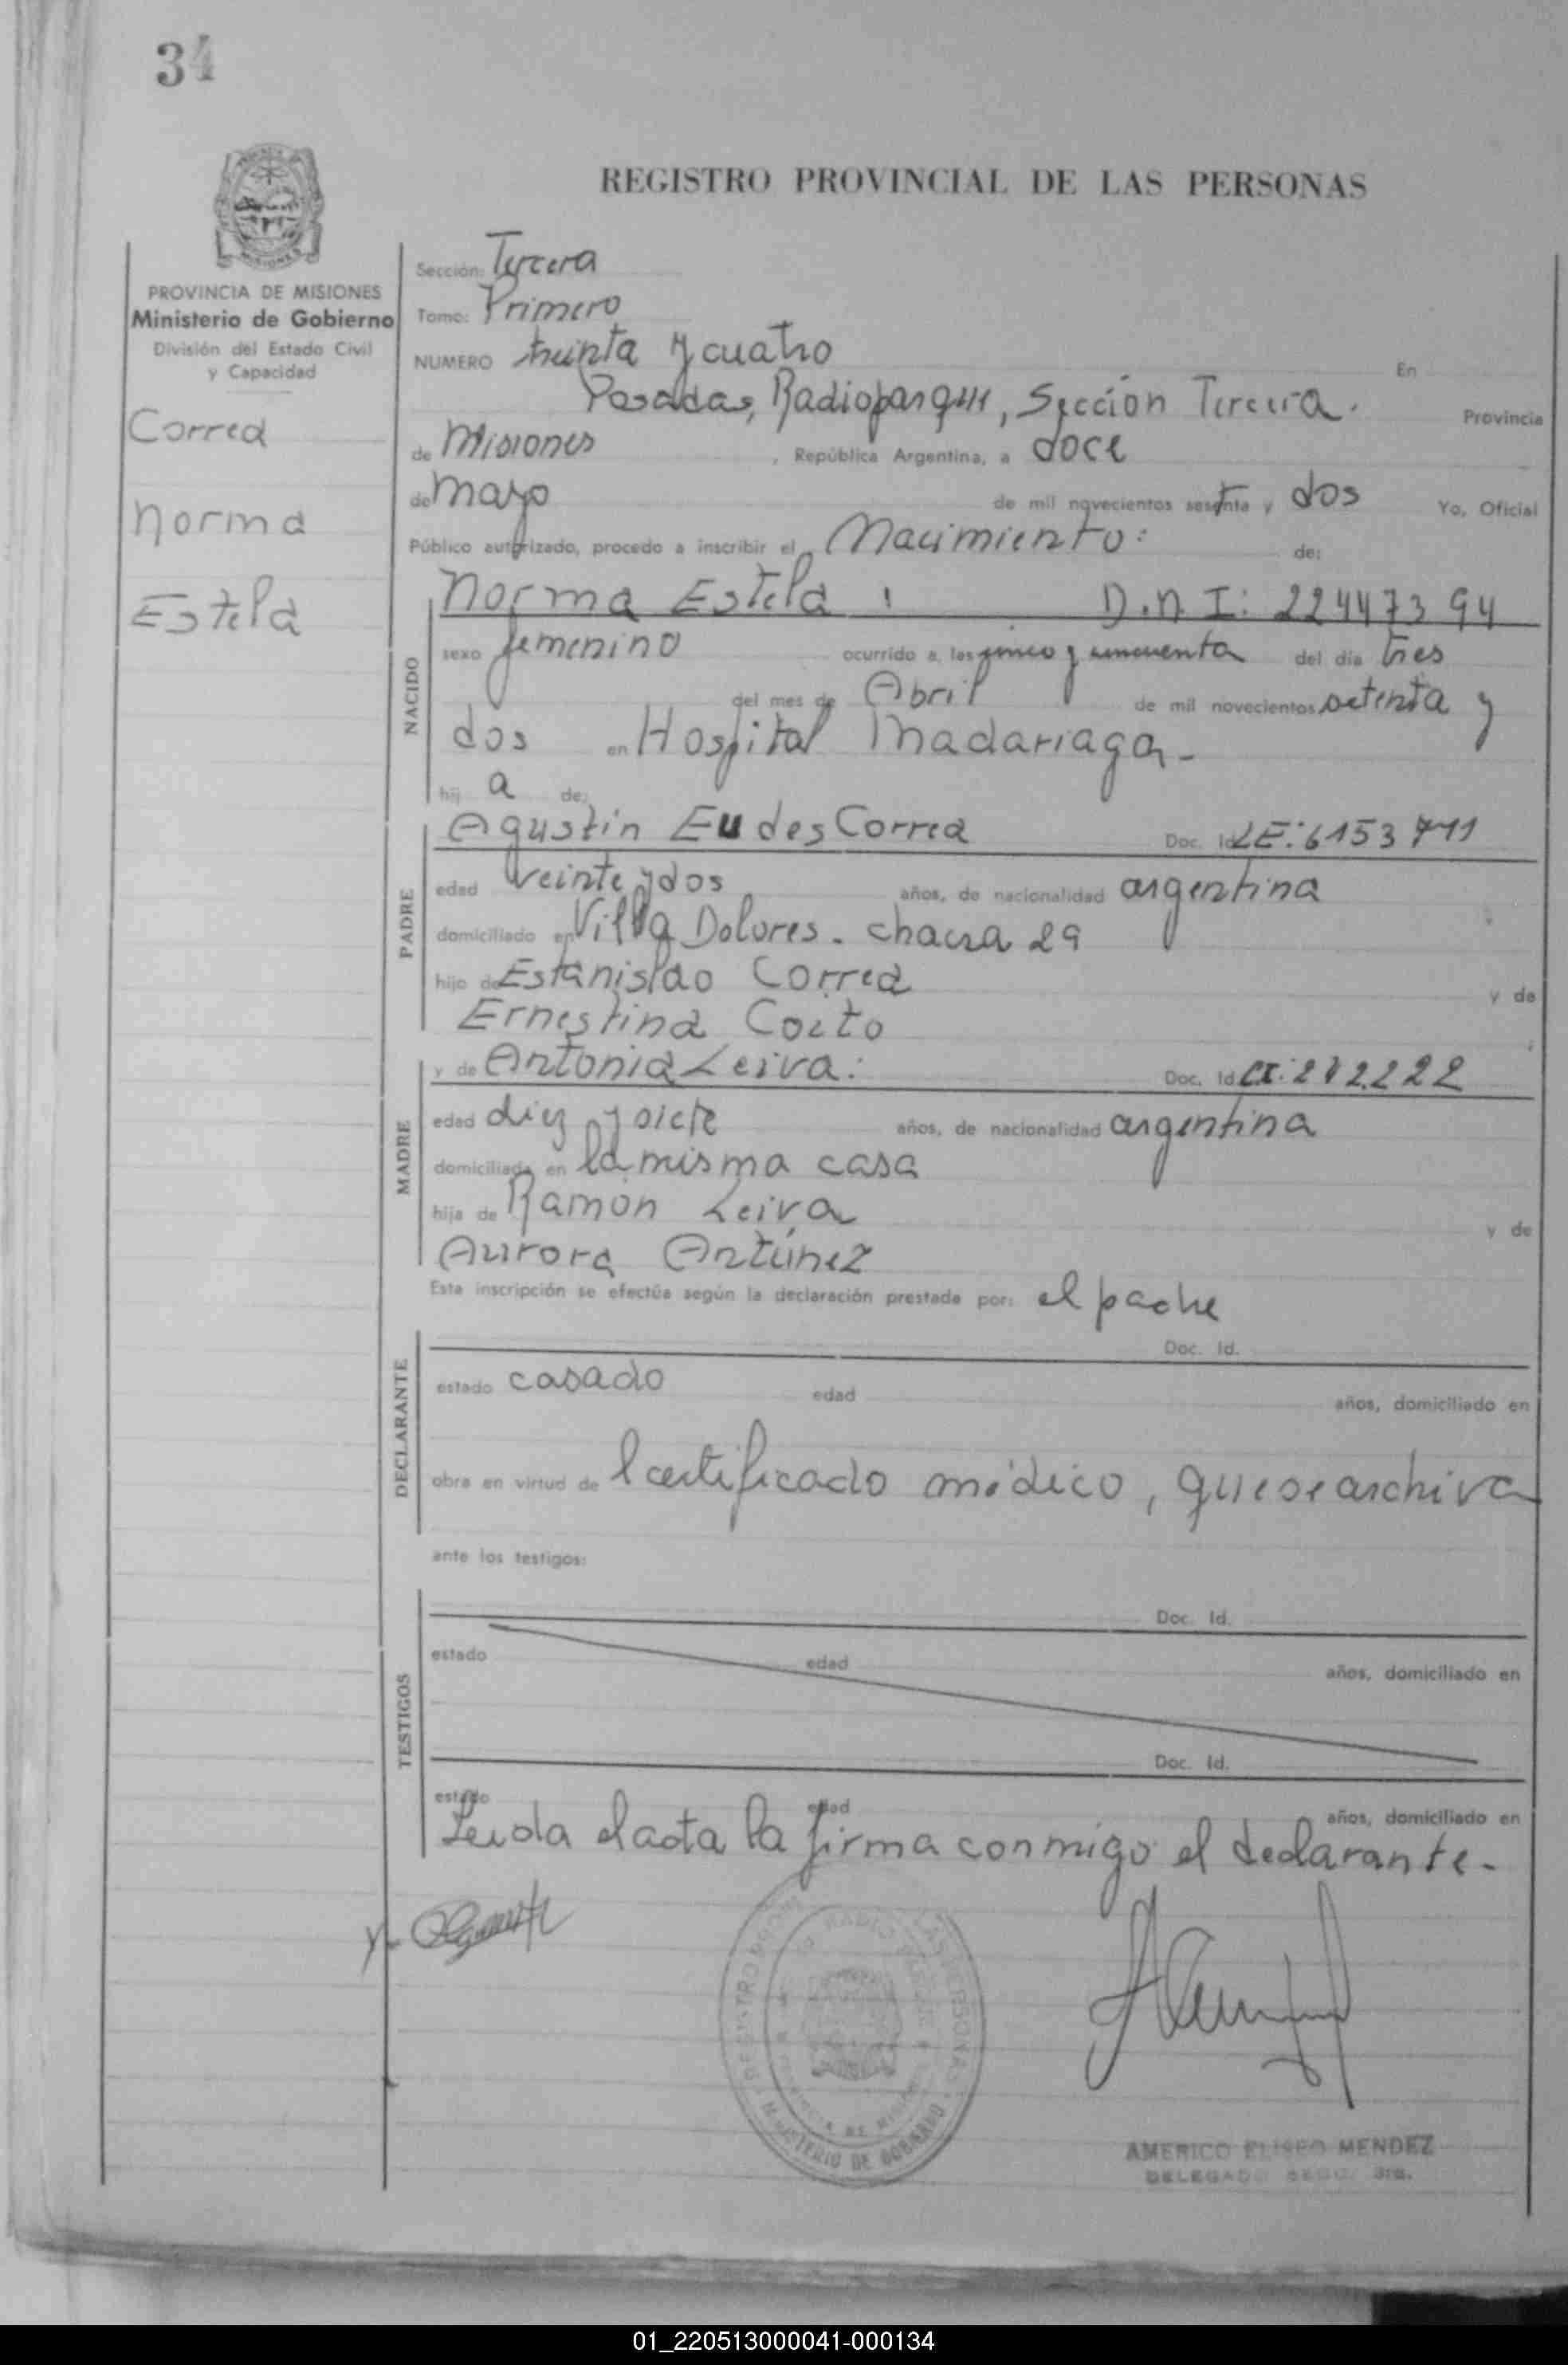 34
REGISTRO PROVINCIAL DE LAS PERSONAS
PROVINCIA DE MISIONES
Ministerio de Gobierno
División del Estado Civil
y Capacidad
Correa
Norma
Estela
Sección: Tercera
Tomo: Primero
NUMERO treinta y cuatro En
Posadas, Radioparque, Sección Tercera. Provincia
de Misiones, República Argentina, a doce
de mayo de mil novecientos setenta y dos Yo, Oficial
Público autorizado, procedo a inscribir el Nacimiento: de:
NACIDO
Norma Estela : D.N.I: 22447394
sexo femenino ocurrido a las cinco y cincuenta del día tres
del mes de Abril de mil novecientos setenta y
dos en Hospital Madariaga -
hij a de:
PADRE
Agustin Eudes Correa Doc. Id LE: 6153711
edad veinte y dos años, de nacionalidad argentina
domiciliado en Villa Dolores - chacra 29
hijo de Estanislao Correa y de
Ernestina Coito
MADRE
y de Antonia Leiva: Doc. Id CI: 212.222
edad diez y siete años, de nacionalidad argentina
domiciliada en la misma casa
hija de Ramón Leiva y de
Aurora Antúnez
Esta inscripción se efectúa según la declaración prestada por: el padre
DECLARANTE
Doc. Id.
estado casado edad años, domiciliado en
obra en virtud de l certificado médico, que se archiva
ante los testigos:
TESTIGOS
Doc. Id.
estado edad años, domiciliado en
Doc. Id.
estado edad años, domiciliado en
Leida el acta la firma conmigo el declarante.
REGISTRO PROVINCIAL DE LAS PERSONAS
RADIO PARQUE
PROVINCIA DE MISIONES
MINISTERIO DE GOBIERNO
AMERICO ELISEO MENDEZ
DELEGADO SECC. 3ra.
01_220513000041-000134